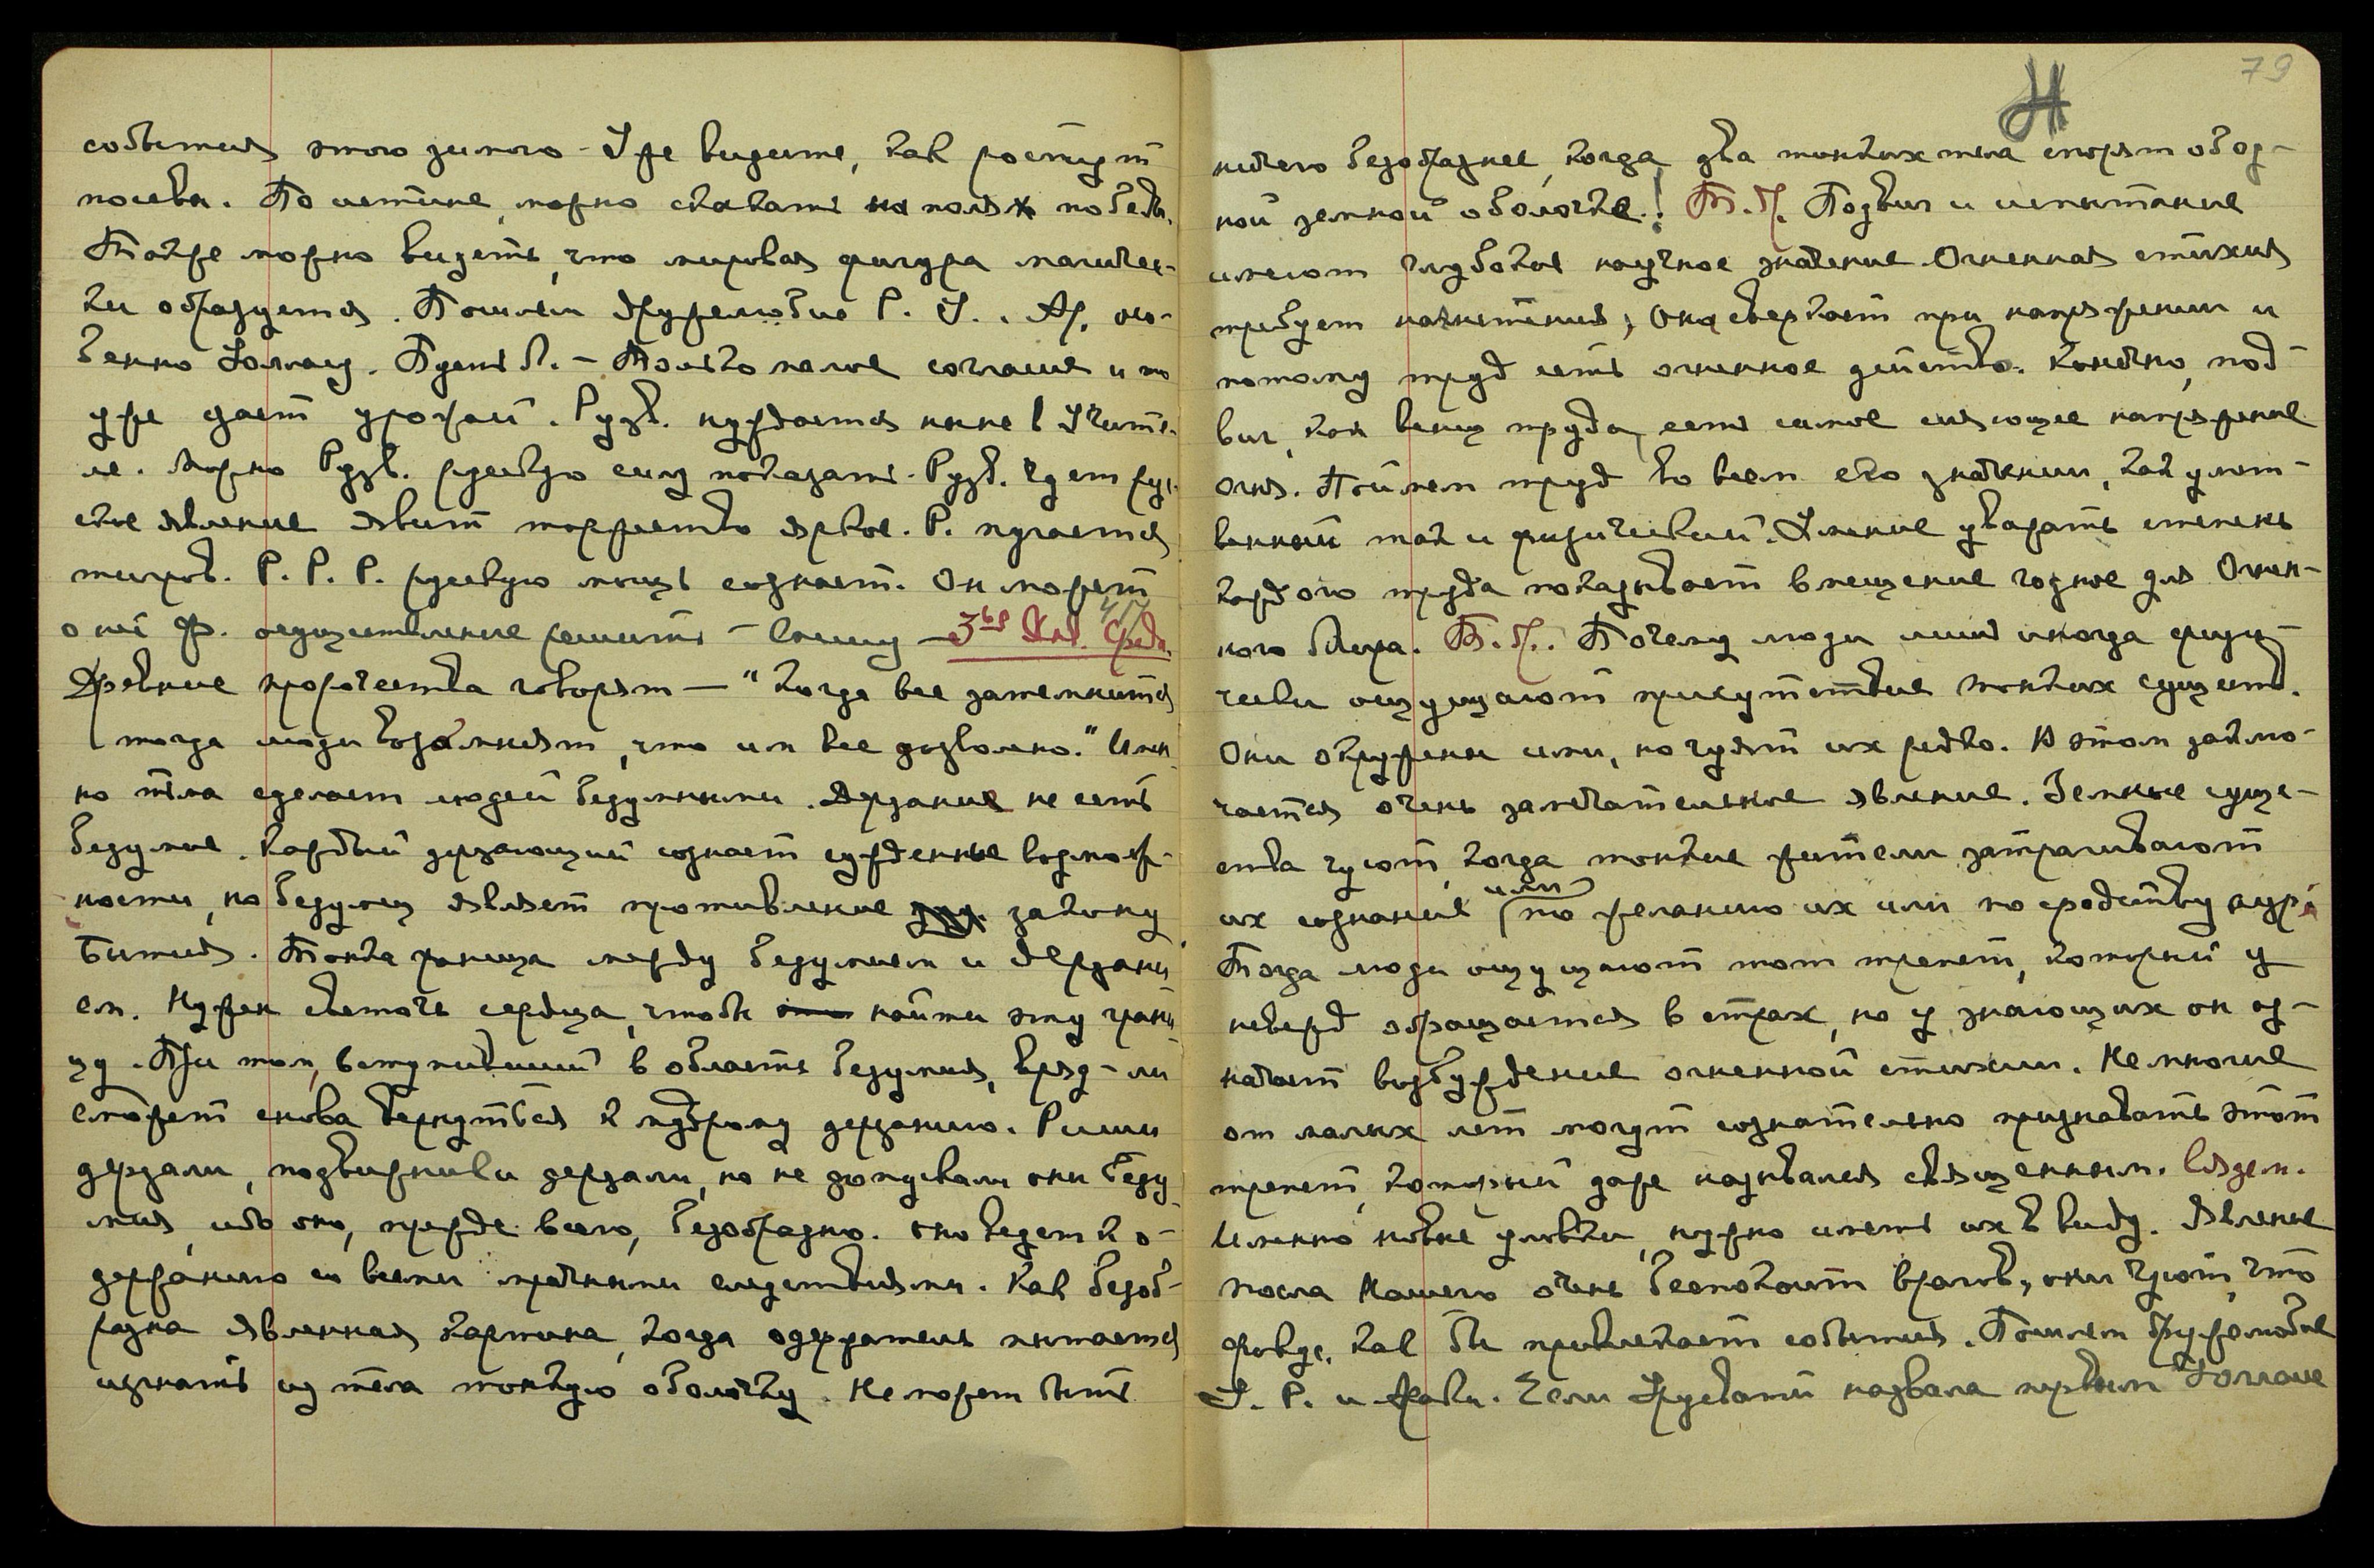 события этого зимого - Уже видите, как ростут
посевы. По истине, можно сказать на полях победы.
Также можно видеть, что мировая фигура магичес-
ки образуется. Пошлем дружелюбие Р. У.. Ар, осо-
бенно Уолласу. - Только малое согласие и то
уже дает урожай. Рузв. нуждается ныне в Учите-
ле. Можно Рузв. русскую силу показать. Рузв. чует рус-
ское явление явит торжество яркое. Р. пугается
Р. Р. Р. русскую мощь сознает. Он может
о ней осуществление решить - 3ья Янв. Среда.
Древние пророчества говорят — "когда все затемнится
тогда люди возомнят, что им все дозволено." Имен-
но тьма сделает людей безумными. Дерзание не есть
безумие. Каждый дерзающий сознает сужденные возмож-
ности, но безумец являет противление закону
Бытия. Тонка граница между безумием и дерзани-
ем. Нужен светочь сердца, чтобы найти эту грани-
цу. При том, вступивший в область безумия, вряд-ли
сможет снова вернуться к мудрому дерзанию. Риши
дерзали, подвижники дерзали, но не допускали они безу-
мия, ибо оно, прежде всего, безобразно. оно ведет к о-
держанию со всеми мрачными следствиями. Как безоб-
разна явленная картина, когда одержатель пытается
изгнать из тела тонкую оболочку. Не может быть
79
ничего безобразнее, когда два тонких тела спорят об од-
ной земной оболочке.! Подвиг и испытание
имеют глубокое научное значение. Огненная стихия
требует нагнетения; Она сверкает при напряжении и
потому труд есть огненное действо. Конечно, под-
виг, как венец труда, есть самое сияющее напряжение
огня. Поймем труд во всем его значении, как умст-
венный так и физический. Умение уважать степень
каждого труда показывает вмещение годное для Огнен-
ного Мира. Почему люди лишь иногда физи-
чески ощущают присутствие тонких существ.
Они окружены ими, но чуят их редко. В этом заклю-
чается очень замечательное явление. Земные суще-
ства чуют, когда тонкие жители затрагивают
их сознание или по желанию их или по сродству ауры
Тогда люди ощущают тот трепет, который у
невежд обращается в страх, но у знающих он оз-
начает возбуждение огненной стихии. Не многие
от малых лет могут сознательно признавать этот
трепет, который даже назывался священным.
Именно новые уловки, нужно иметь их в виду. Явление
посла Нашего очень беспокоит врагов, они чуют, что
Форд, как бы привлекает события. Пошлем дружелюбие
У. Р. и Если назвала первым Уоллас